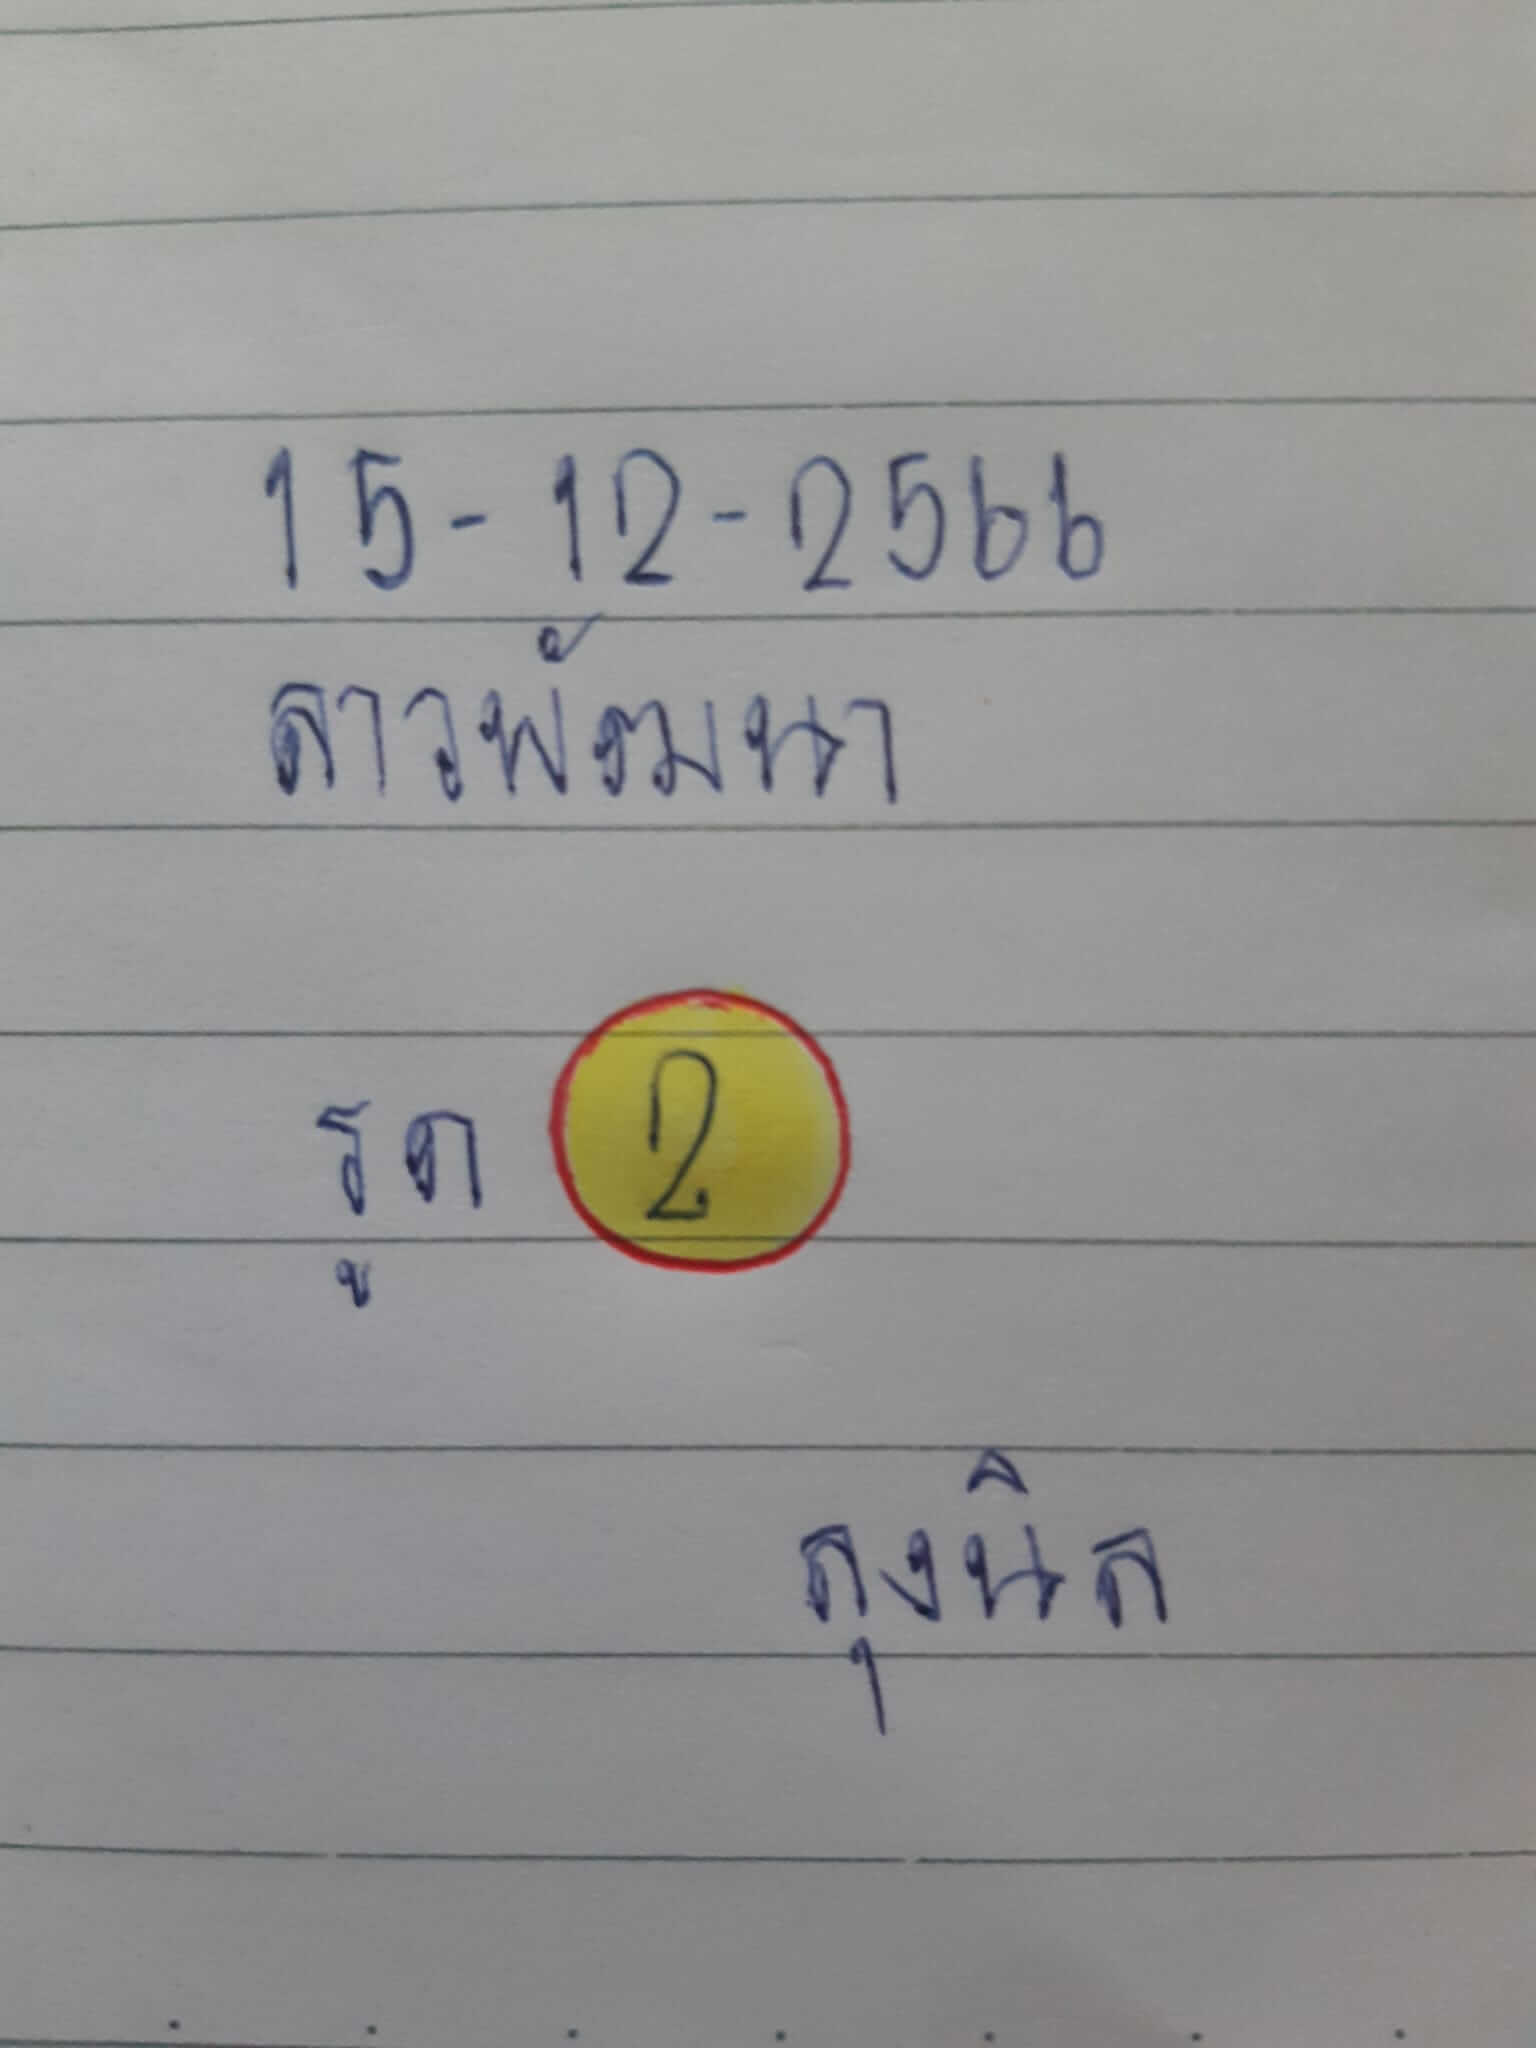 15-12-2566
ลาวพัฒนา
รูด 2
ลุงนิล